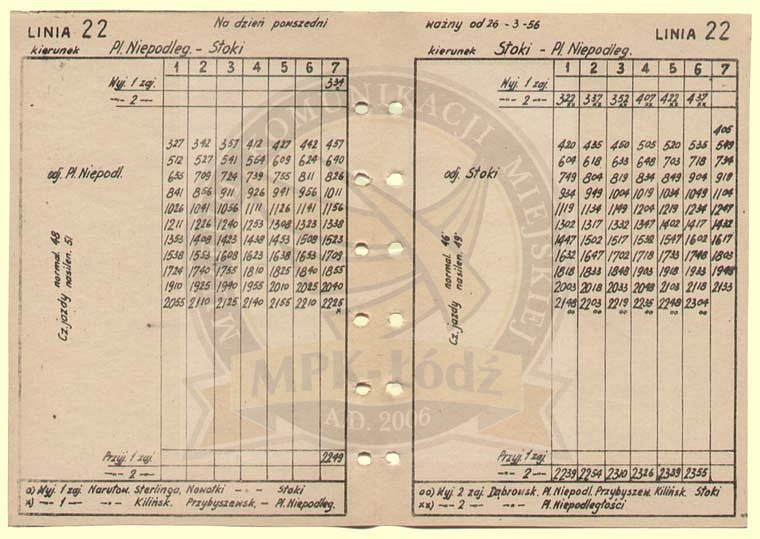 LINIA 22
Na dzień powszedni
kierunek Pl. Niepodleg. - Stoki
1 2 3 4 5 6 7
Wyj. 1 zaj. 334
-"- 2 -"-
odj. Pl. Niepodl.
327 342 357 412 427 442 457
512 527 541 554 609 624 640
655 709 724 739 755 811 826
841 856 911 926 941 956 1011
1026 1041 1056 1111 1126 1141 1156
1211 1226 1240 1253 1308 1323 1338
1353 1408 1423 1438 1453 1508 1523
1538 1553 1608 1623 1638 1653 1709
1724 1740 1755 1810 1825 1840 1855
1910 1925 1940 1955 2010 2025 2040
2055 2110 2125 2140 2155 2210 2225
x
Cz. jazdy normal. 48
nasilen. 51
Przyj. 1 zaj. 2249
-"- 2 -"-
o) Wyj. 1 zaj. Narutow. Sterlinga, Nowotki -"- - Stoki
x) -"- 1 -"- -"- Kilińsk. Przybyszewsk. - Pl. Niepodleg.
ważny od 26 - 3 - 56
LINIA 22
kierunek Stoki - Pl. Niepodleg.
1 2 3 4 5 6 7
Wyj. 1 zaj.
-"- 2 -"- 322 337 352 407 422 437
xx xx xx xx xx xx
405
odj. Stoki
420 435 450 505 520 535 549
604 618 633 648 703 718 734
749 804 819 834 849 904 919
934 949 1004 1019 1034 1049 1104
1119 1134 1149 1204 1219 1234 1247
1302 1317 1332 1347 1402 1417 1432
1447 1502 1517 1532 1547 1602 1617
1632 1647 1702 1718 1733 1748 1803
1818 1833 1848 1903 1918 1933 1948
2003 2018 2033 2048 2103 2118 2133
2148 2203 2219 2235 2248 2304
oo oo oo oo oo oo
Cz. jazdy normal. 46
nasilen. 49
Przyj. 1 zaj.
-"- 2 -"- 2239 2254 2310 2326 2339 2355
oo) Wyj 2 zaj. Dąbrowsk. Pl. Niepodl. Przybyszew. Kilińsk. Stoki
xx) -"- 2 -"- -"- Pl. Niepodległości
KOMUNIKACJI MIEJSKIEJ
MPK-Łódź
A.D. 2006